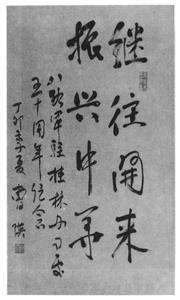 继往开来
振兴中华
八路军驻桂林办事处
五十周年纪念
丁卯年夏